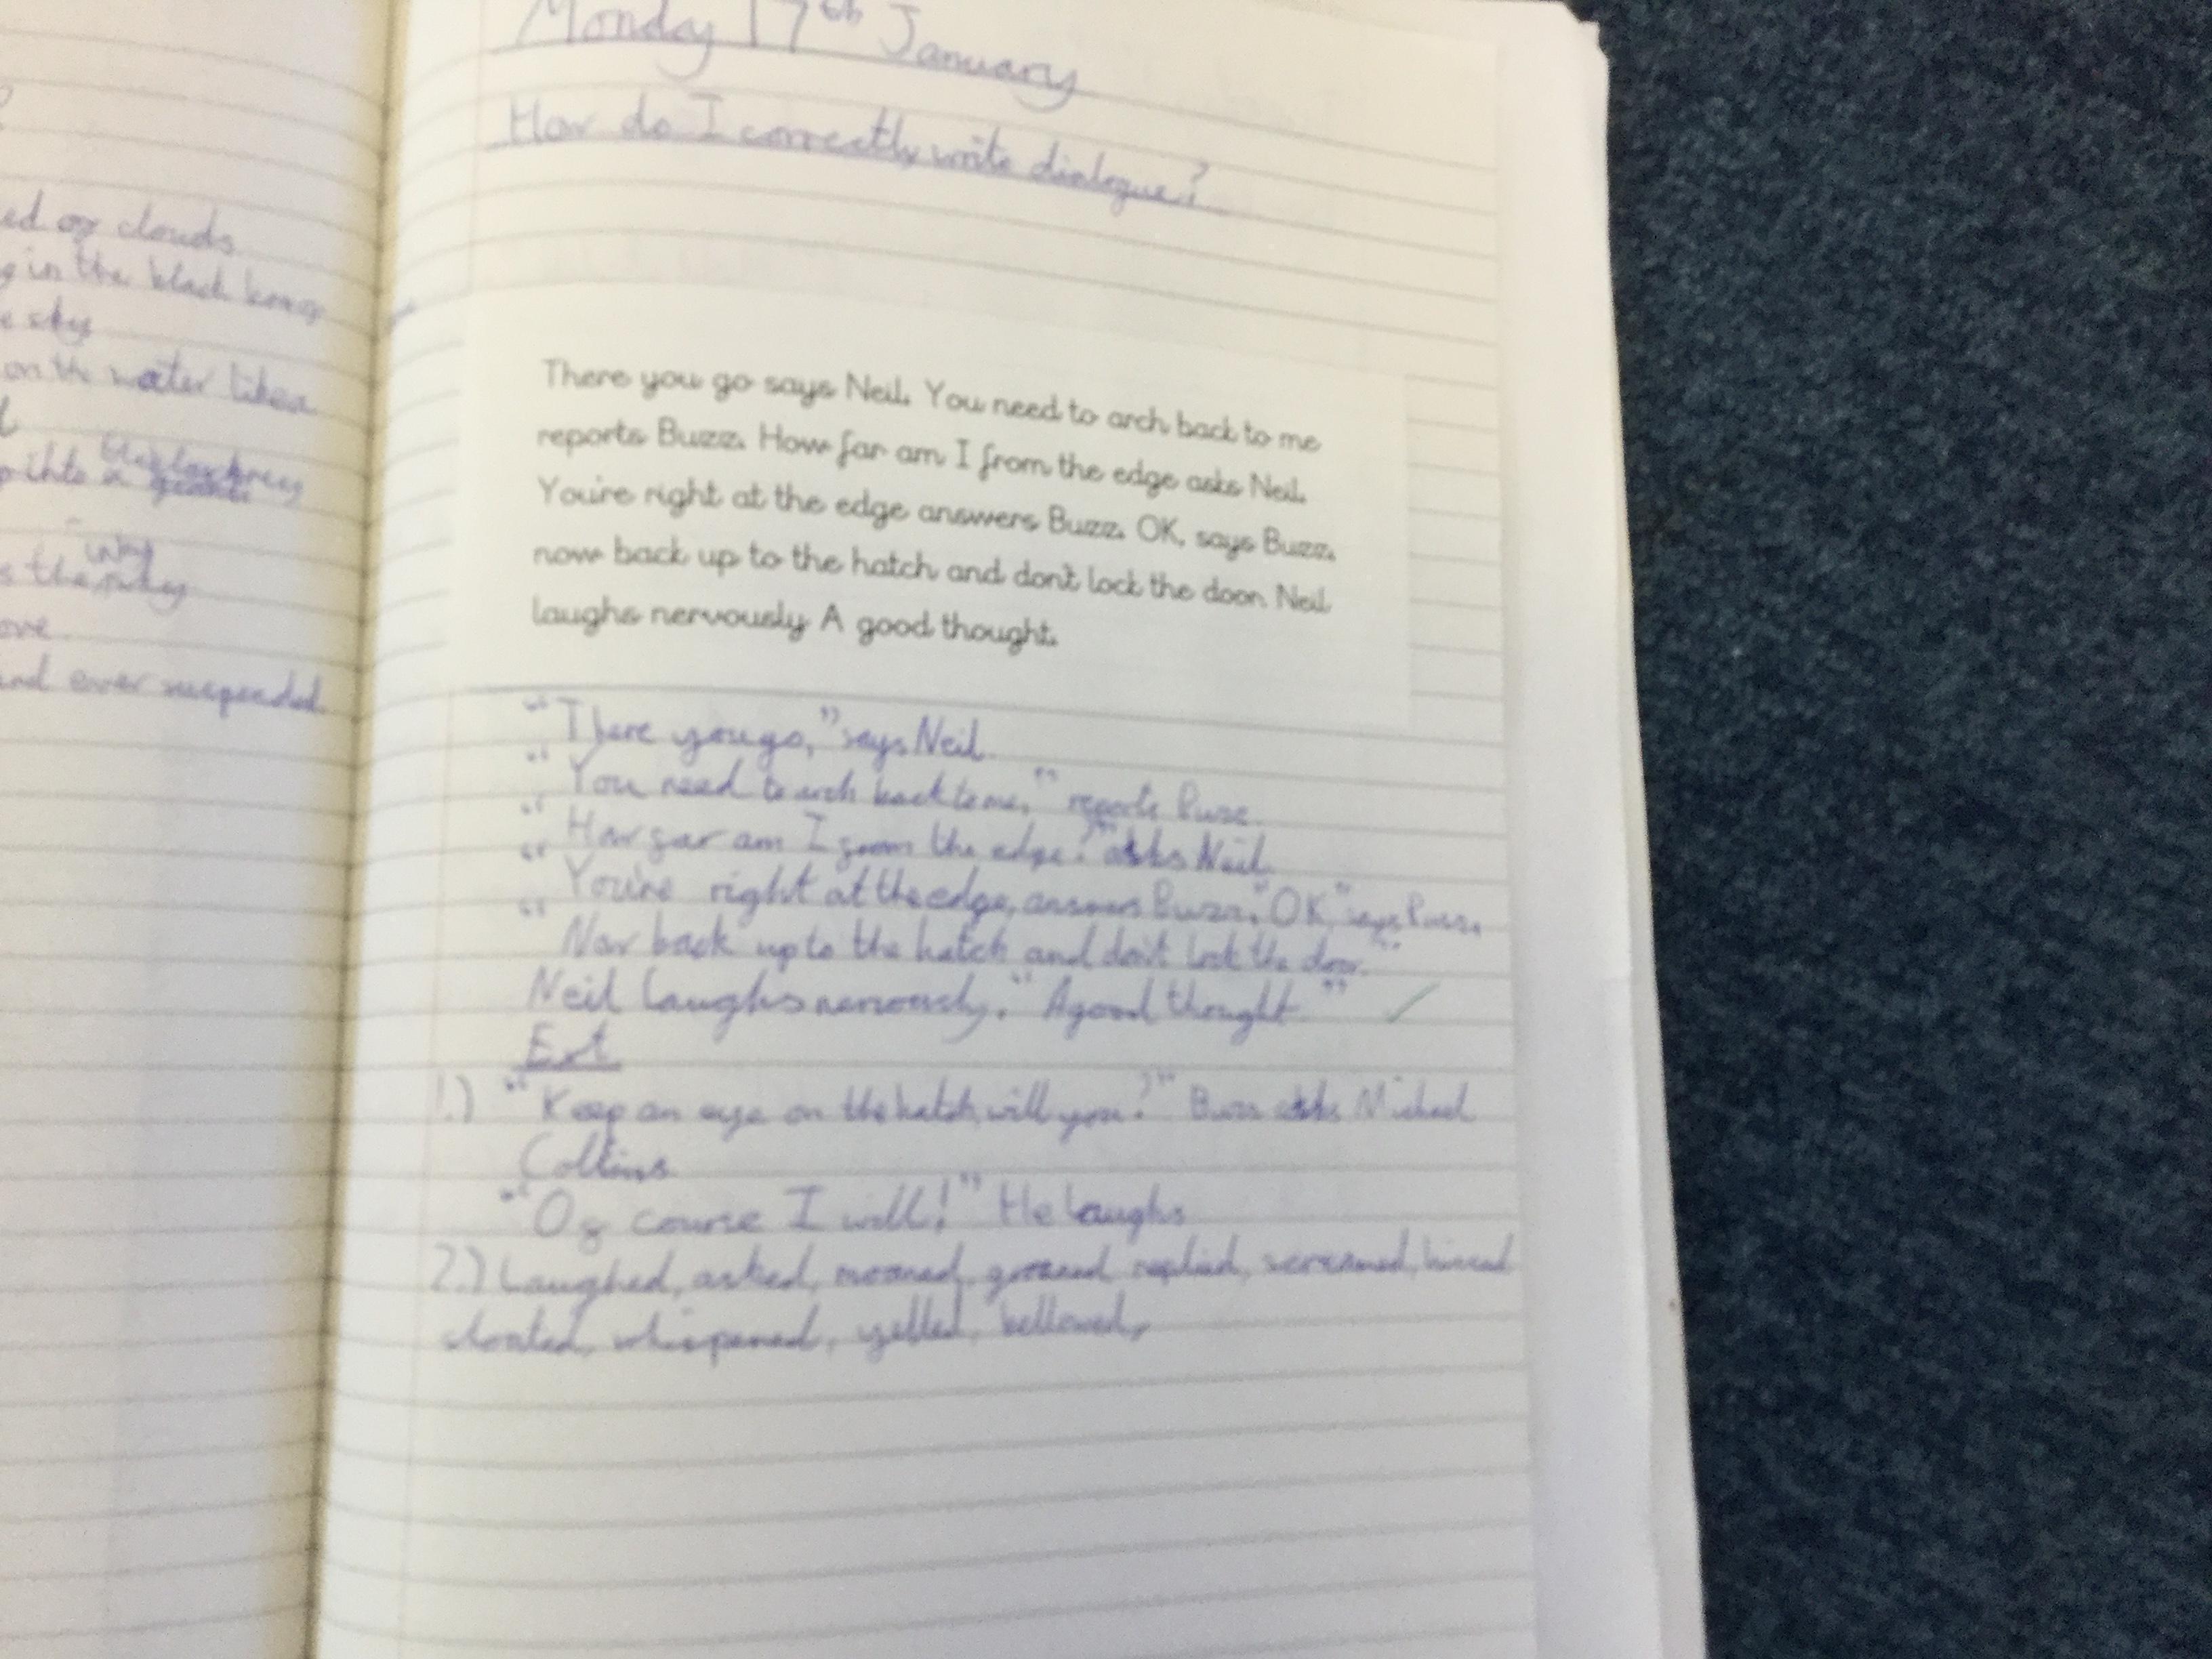 ed of clouds
in the black
sky
on the water like a
into a
inky
ove
and ever suspended
Monday 17th January
How do I correctly write dialogue?
There you go says Neil. You need to arch back to me
reports Buzz. How far am I from the edge asks Neil.
You're right at the edge answers Buzz. OK, says Buzz.
now back up to the hatch and don't lock the door. Neil
laughs nervously A good thought.
"There you go," says Neil.
"You need to arch back to me," reports Buzz.
"How far am I from the edge?" asks Neil.
"You're right at the edge, answers Buzz. "OK," says Buzz.
"Now back up to the hatch and don't lock the door."
Neil laughs nervously. "A good thought."
Ext
1.) "Keep an eye on the hatch, will you?" Buzz asks Michael
Collins
"Of course I will!" He laughs
2.) Laughed, asked, moaned, groaned, replied, screamed,
whispered, yelled, bellowed,